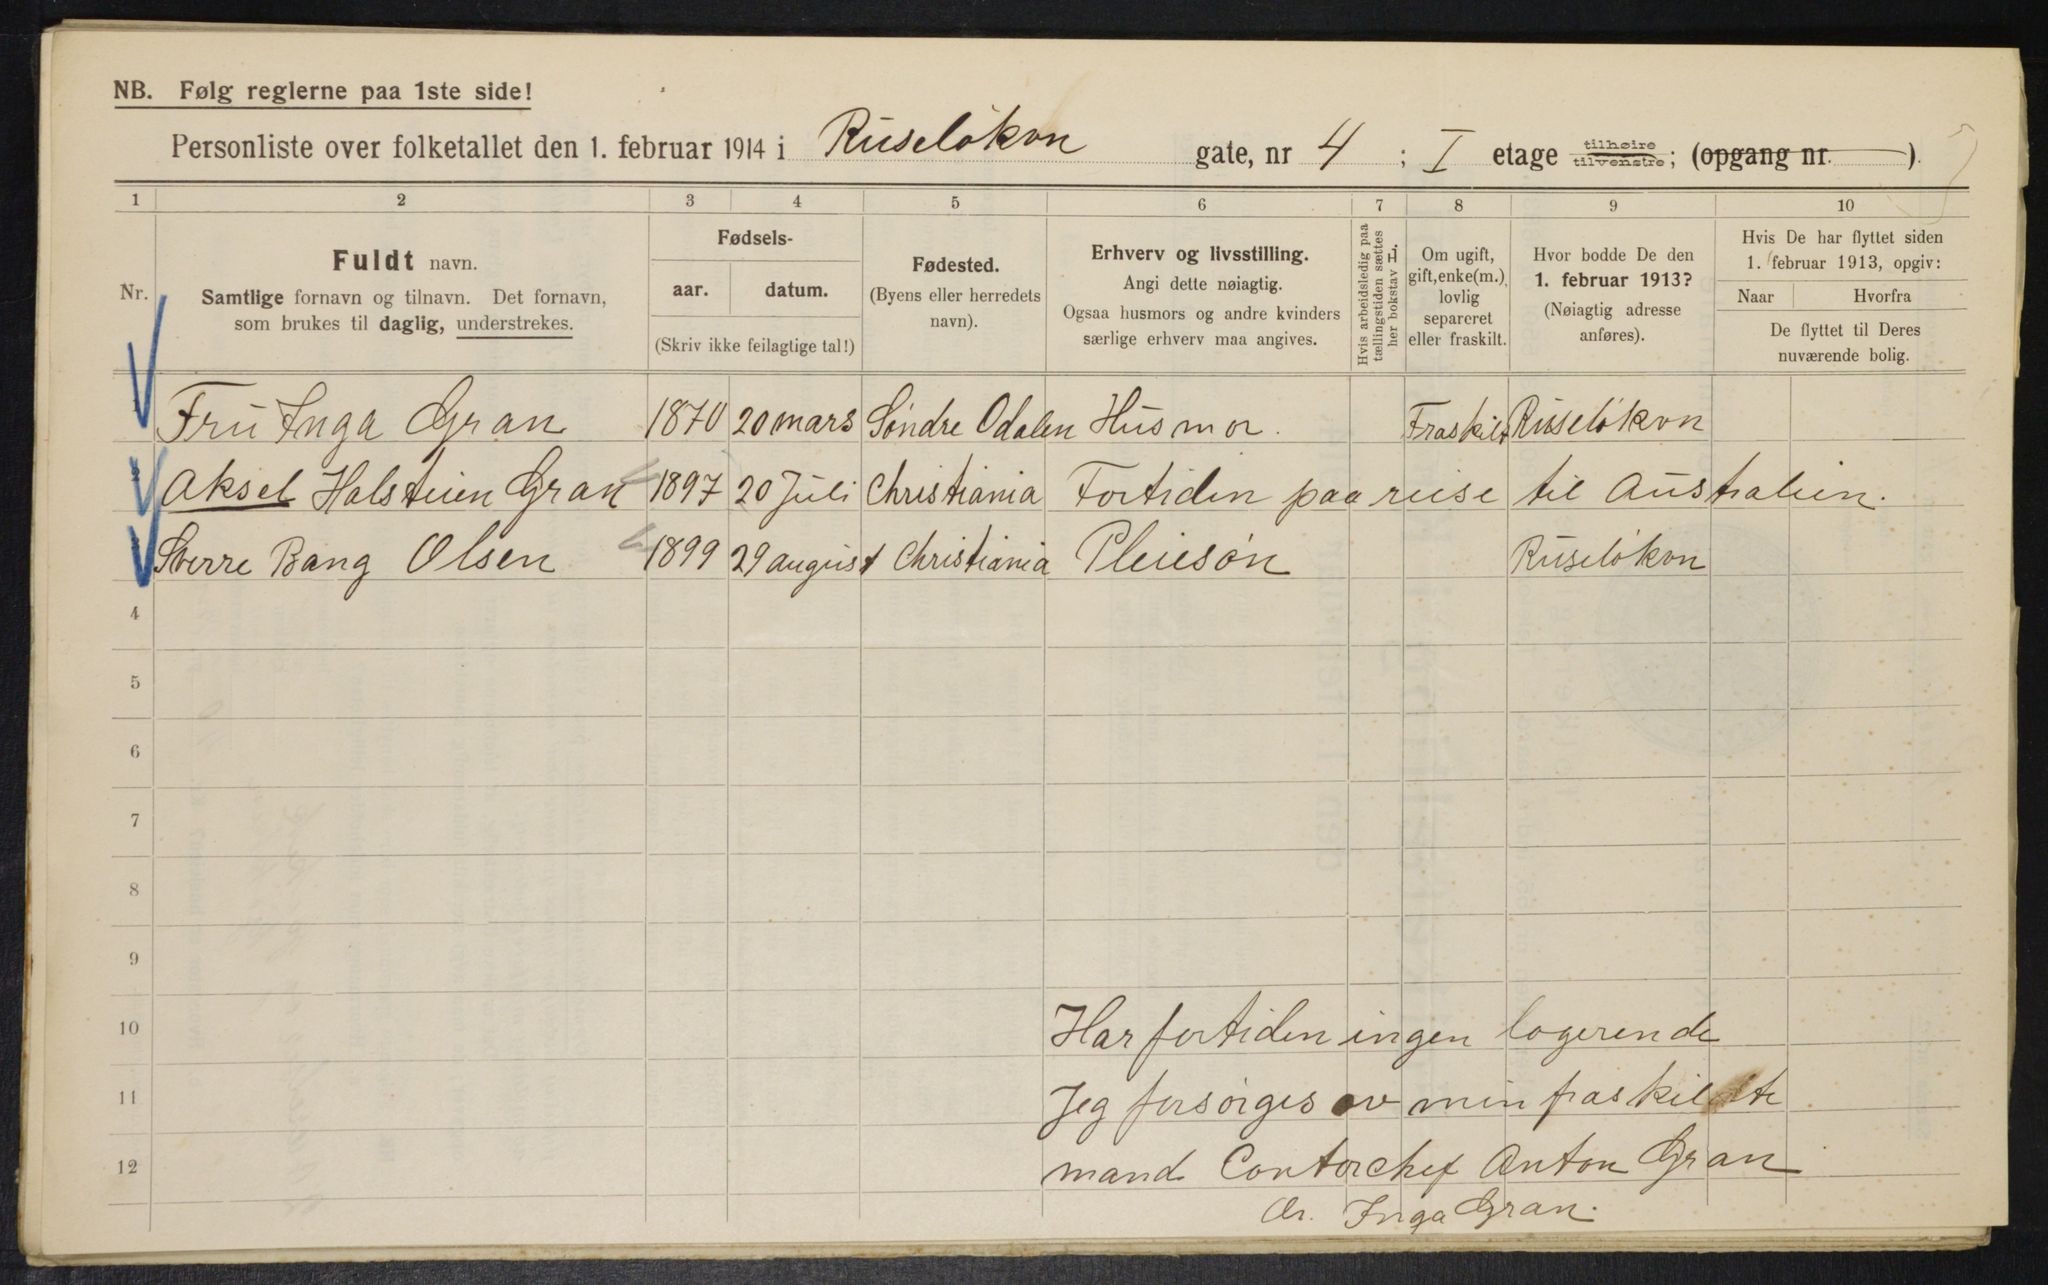 NB. Følg reglerne paa 1ste side!
Personliste over folketallet den 1. februar 1914 i Ruseløkvn gate, nr 4 ; I etage tilhøire tilvenstre; (opgang nr. )
1 2 3 4 5 6 7 8 9 10
Nr.
Fuldt navn.
Samtlige fornavn og tilnavn. Det fornavn,
som brukes til daglig, understrekes.
Fødsels-
aar. datum.
(Skriv ikke feilagtige tal!)
Fødested.
(Byens eller herredets
navn).
Erhverv og livsstilling.
Angi dette nøiagtig.
Ogsaa husmors og andre kvinders
særlige erhverv maa angives.
Hvis arbeidsledig paa
tællingstiden sættes
her bokstav L.
Om ugift,
gift, enke(m.),
lovlig
separeret
eller fraskilt.
Hvor bodde De den
1. februar 1913?
(Nøiagtig adresse
anføres).
Hvis De har flyttet siden
1. februar 1913, opgiv:
Naar Hvorfra
De flyttet til Deres
nuværende bolig.
Fru Inga Gran 1870 20 mars Søndre Odalen Husmor. Fraskilt Ruseløkvn
Aksel Halsteien Gran 1897 20 Juli Christiania Fortiden paa reise til Australien.
Sverre Bang Olsen 1899 29 august Christiania Pleiesøn Ruseløkvn
4
5
6
7
8
9
10 Har fortiden ingen logerende
11 Jeg forsørges av min fraskildte
12 mand Contorchef Anton Gran
Inga Gran.